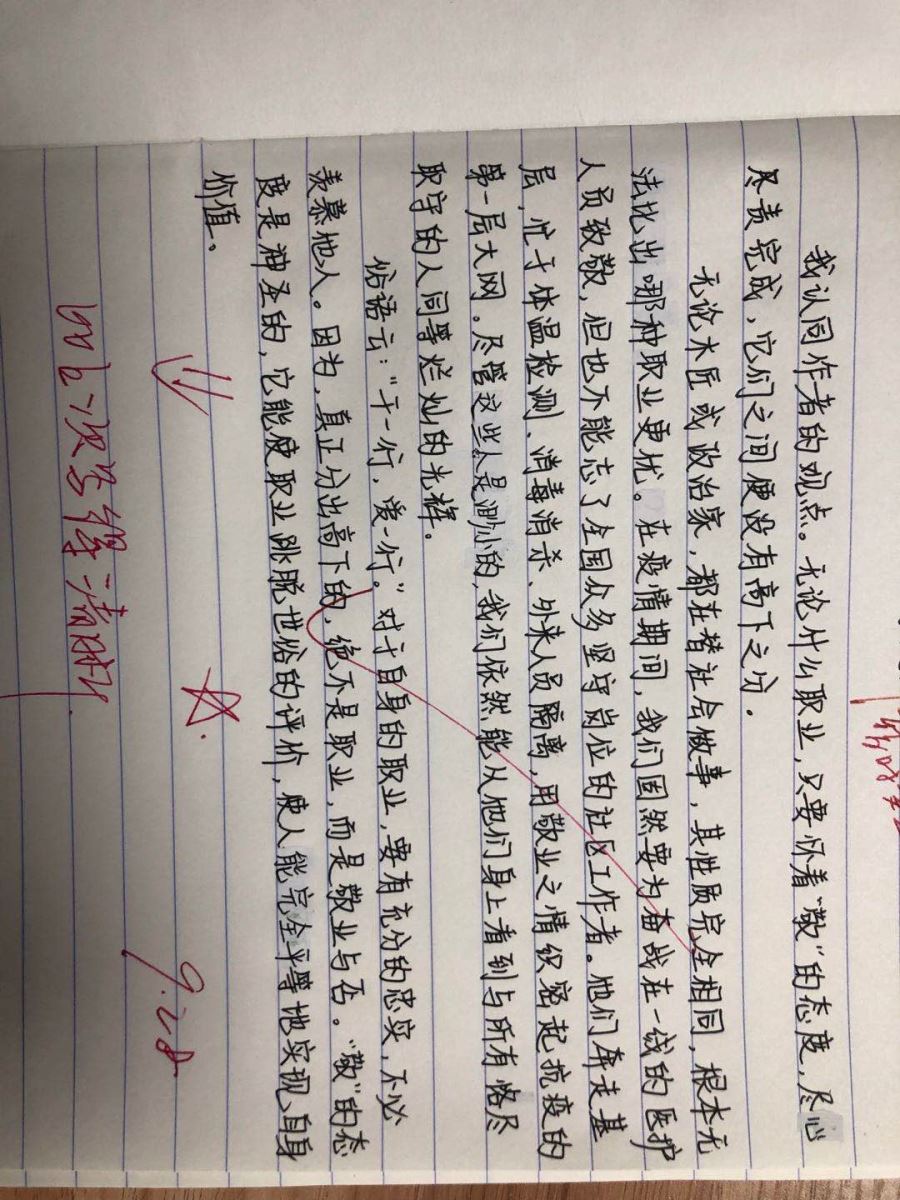 我认同作者的观点。无论什么职业，只要怀着“敬”的态度，尽心
尽责完成，它们之间便没有高下之分．
无论木匠或政治家，都在替社会做事，其性质完全相同，根本无
法比出哪种职业更优。在疫情期间，我们固然要为奋战在一线的医护
人员致敬，但也不能忘了全国众多坚守岗位的社区工作者。他们奔走基
层，忙于体温检测、消毒消杀、外来人员隔离，用敬业之情织密起抗疫的
第一层大网。尽管这些人是渺小的，我们依然能从他们身上看到与所有恪尽
职守的人同等灿烂的光辉。
俗语云：“干一行，爱一行。”对于自身的职业，要有充分的忠实，不必
羡慕他人。因为，真正分出高下的，绝不是职业，而是敬业与否。“敬”的态
度是神圣的，它能使职业跳脱世俗的评价，使人能完全平等地实现自身
价值。
9.28